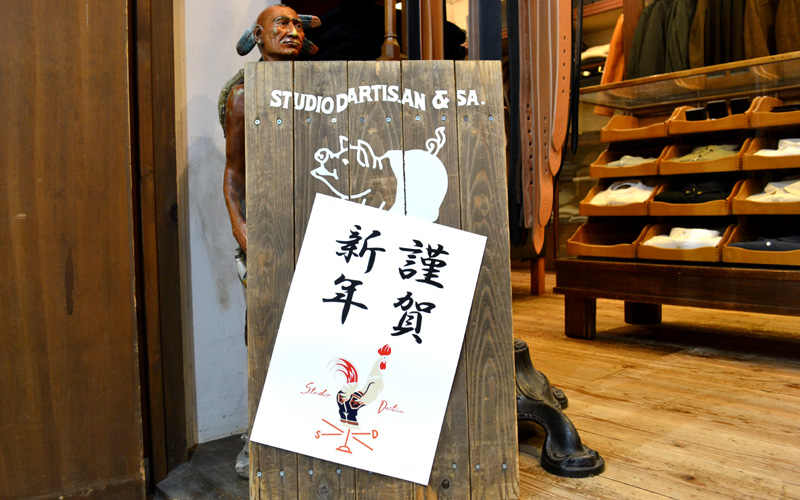 STUDIO DARTISAN & SA.
謹賀
新年
Studio Dartisan
S D